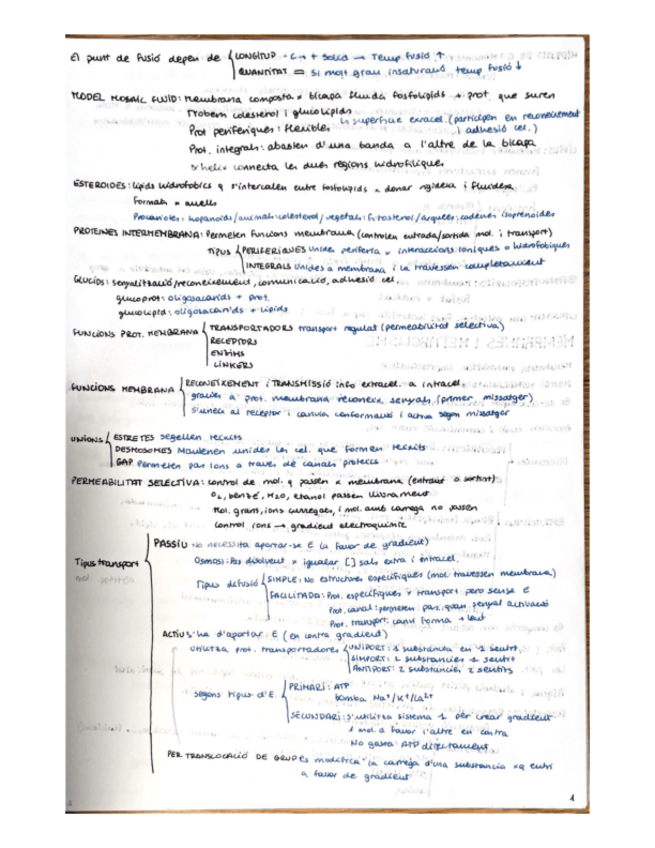 El punt de fusió depen de { LONGITUD - C → + solid → Temp fusió ↑
QUANTITAT = si molt grau insaturació temp fusió ↓
MODEL MOSAIC FLUID: membrana composta x bicapa fluida fosfolípids + prot. que suren
Trobem colesterol i glucolípids
↳ superficie extracel. (participen en reconeixement i adhesió cel.)
Prot perifèriques: flexibles
Prot. integrals: abasten d'una banda a l'altre de la bicapa
α hèlix connecta les dues regions hidrofíliques
ESTEROIDES: lípids hidrofòbics q s'intercalen entre fosfolípids x donar rigidesa i fluidesa
Formats x anells
Procariotes: hopanoids/animals: colesterol/vegetals: fitosterol/arquees: cadenes isoprenoides
PROTEINES INTERMEMBRANA: Permeten funcions membrana (controlen entrada/sortida mol. i transport)
TIPUS { PERIFÈRIQUES unides perifèria x interaccions iòniques o hidrofòbiques
INTEGRALS unides a membrana i la travessen completament
GLÚCIDS: senyalització/reconeixement, comunicació, adhesió cel.
glucoprot: oligosacàrids + prot.
glucolípid: oligosacàrids + lípids
FUNCIONS PROT. MEMBRANA { TRANSPORTADORS transport regulat (permeabilitat selectiva)
RECEPTORS
ENZIMS
LINKERS
FUNCIONS MEMBRANA { RECONEIXEMENT i TRANSMISSIÓ info extracel. a intracel.
gràcies a prot. membrana reconeix senyals (primer missatger)
s'uneix al receptor i canvia conformació i activa segon missatger
UNIONS { ESTRETES segellen teixits
DESMOSOMES Mantenen unides les cel. que formen teixits
GAP Permeten pas ions a través de canals proteics
PERMEABILITAT SELECTIVA: control de mol. q passen x membrana (entrant o sortint)
O₂, benzè, H₂O, etanol passen lliurament
Mol. grans, ions carregats, i mol. amb carrega no passen
Control ions → gradient electroquímic
Tipus transport
mol petites
PASSIU No necessita aportar-se E (a favor de gradient)
Osmosi: Pas disolvent x igualar [ ] sals extra i intracel.
Tipus difusió { SIMPLE: No estructures específiques (mol. travessen membrana)
FACILITADA: Prot. específiques x transport però sense E
Prot. canal: permeten pas quan senyal activació
Prot. transport: canvi forma + lent
ACTIU s'ha d'aportar E (en contra gradient)
utilitza prot. transportadores { UNIPORT: 1 substància en 1 sentit
SIMPORT: 2 substàncies 1 sentit
ANTIPORT: 2 substàncies 2 sentits
segons tipus d'E { PRIMARI: ATP
bomba Na⁺/K⁺/Ca²⁺
SECUNDARI: s'utilitza sistema 1 per crear gradient
1 mol. a favor i l'altre en contra
No gasta ATP directament
PER TRANSLOCACIÓ DE GRUP Es modifica la carrega d'una substància xq entri
a favor de gradient
1